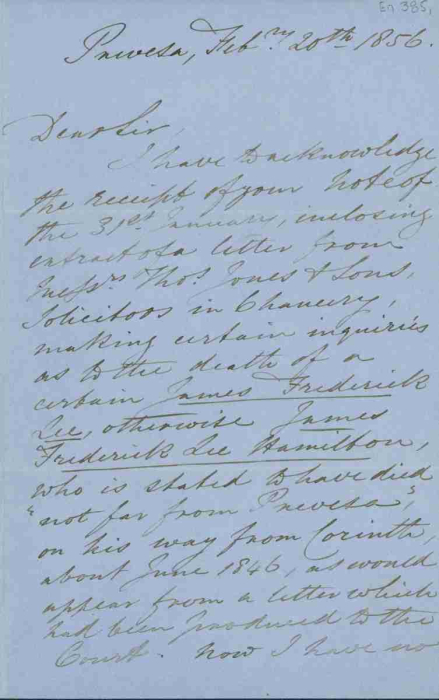 En 385,
Prevesa, Feb.ry 20th 1856.
Dear Sir,
I have to acknowledge
the receipt of your Note of
the 31st January, inclosing
extract of a letter from
Messrs Thos. Jones & Sons,
Solicitors in Chancery,
making certain inquiries
as to the death of a
certain James Frederick
Lee, otherwise James
Frederick Lee Hamilton,
who is stated to have died
"not far from Prevesa",
on his way from Corinth,
about June 1846, as would
appear from a letter which
had been produced to the
Court. Now I have no